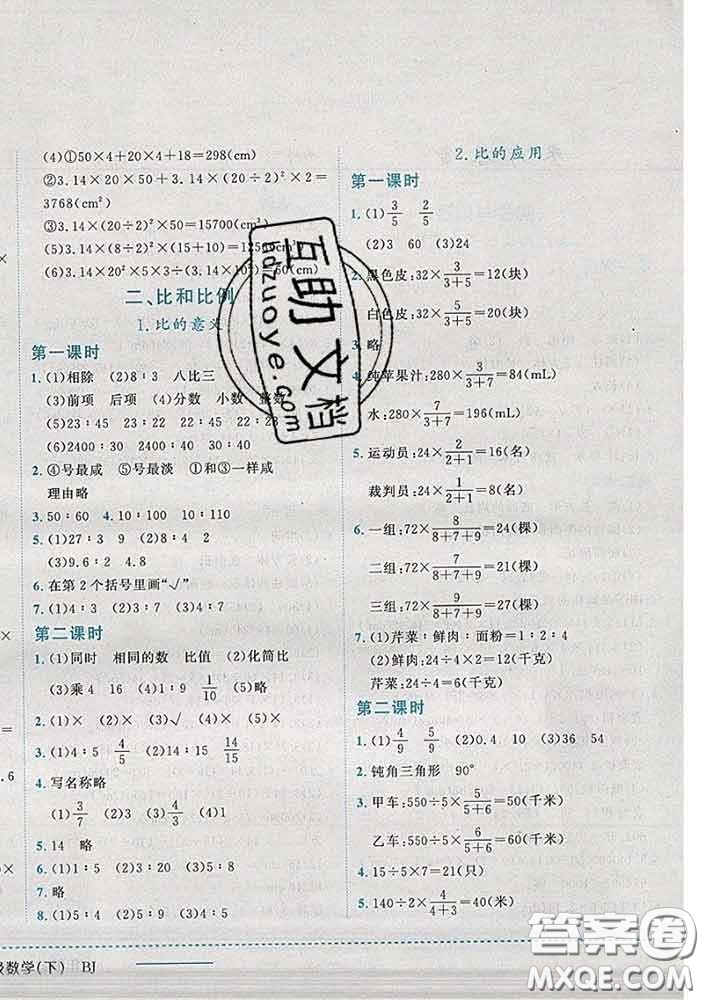 (4)①50×4+20×4+18=298(cm)
②3.14×20×50+3.14×(20÷2)²×2=
3768(cm²)
③3.14×(20÷2)²×50=15700(cm³)
(5)3.14×(8÷2)²×(15+10)=1256(cm³)
(6)3.14×(2÷2)²×5×3÷(12÷2)=
二、比和比例
1.比的意义
第一课时
1.(1)相除 (2)8∶3 八比三
(3)前项 后项 (4)分数 小数 整数
(5)23∶45 23∶22 22∶45 22∶23
(6)2400∶30 2400∶30 40∶30
2.④号最咸 ⑤号最淡 ①和③一样咸
理由略
3.50∶60 4.10∶100 10∶110
5.(1)27∶3 9 (2)8∶4 2
(3)9.6∶2 4.8
6.在第2个括号里画“√”
7.(1)2∶3 (2)3∶4 (3)4∶3
第二课时
1.(1)同时 相同的数 比值 (2)化简比
(3)乘4 16 (4)1∶10 1/10 (5)略
2.(1)× (2)× (3)√ (4)×
3.(1)4∶5 4/5 (2)14∶15 14/15
4.写名称略
(1)3/7 (2)3 (3)4/3 (4)1
5.14 略
6.(1)1∶5 (2)3∶20 (3)5∶8
7.略
8.(1)5∶4 (2)4∶5 (3)4∶9 (4)5∶9
2.比的应用
第一课时
1.(1)3/5 2/5
(2)3 60 (3)24
2.黑色皮:32×3/(3+5)=12(块)
白色皮:32×5/(3+5)=20(块)
3.略
4.纯苹果汁:280×3/(3+7)=84(mL)
水:280×7/(3+7)=196(mL)
5.运动员:24×2/(2+1)=16(名)
裁判员:24×1/(2+1)=8(名)
6.一组:72×8/(8+7+9)=24(棵)
二组:72×7/(8+7+9)=21(棵)
三组:72×9/(8+7+9)=27(棵)
7.(1)芹菜∶鲜肉∶面粉=1∶2∶4
(2)鲜肉:24÷4×2=12(千克)
芹菜:24÷4=6(千克)
第二课时
1.(1)4/9 5/9 (2)0.4 10 (3)36 54
2.钝角三角形 90°
3.甲车:550÷5×5/(5+6)=50(千米)
乙车:550÷5×6/(5+6)=60(千米)
4.15÷5×7=21(只)
5.140÷2×4/(4+3)=40(米)
×
×
=
.6
×
级数学(下) BJ
互助文档
hdzuoye.com
答案圈
MXQE.COM